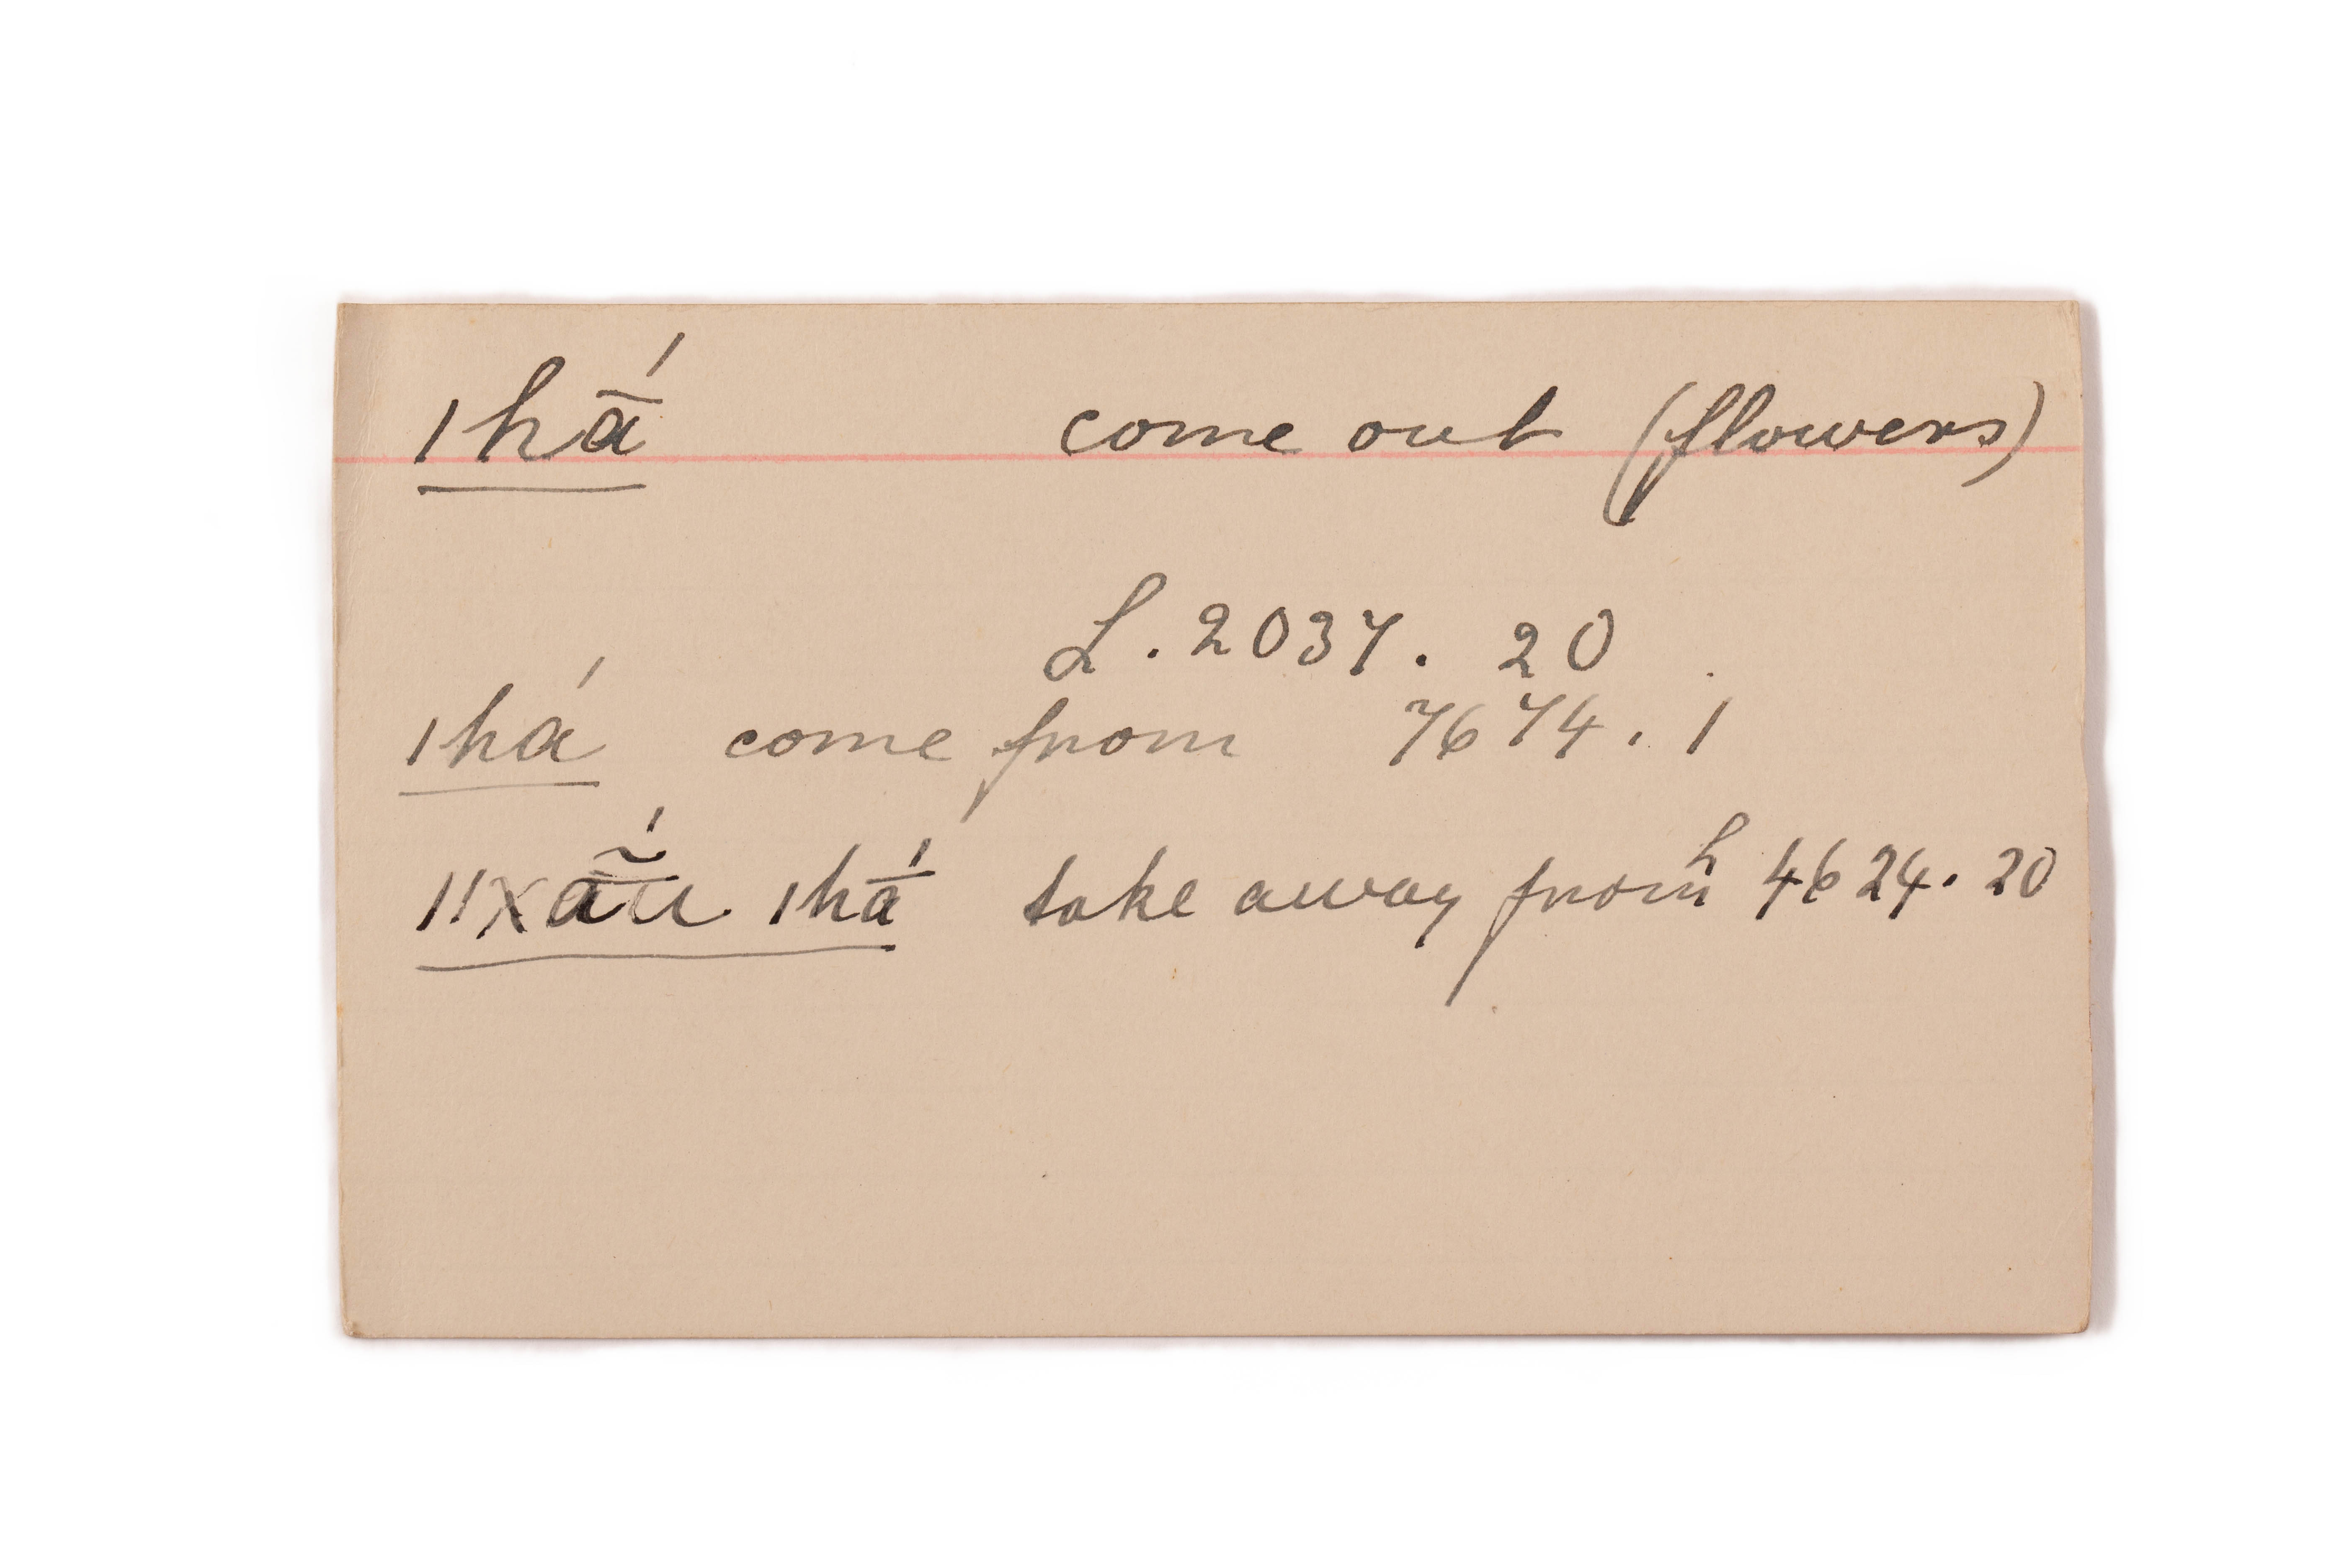 |hā́ come out (flowers)
L. 2037. 20
|há come from 7674. 1
||xā̰̃́u |hā́ take away from L 4624. 20